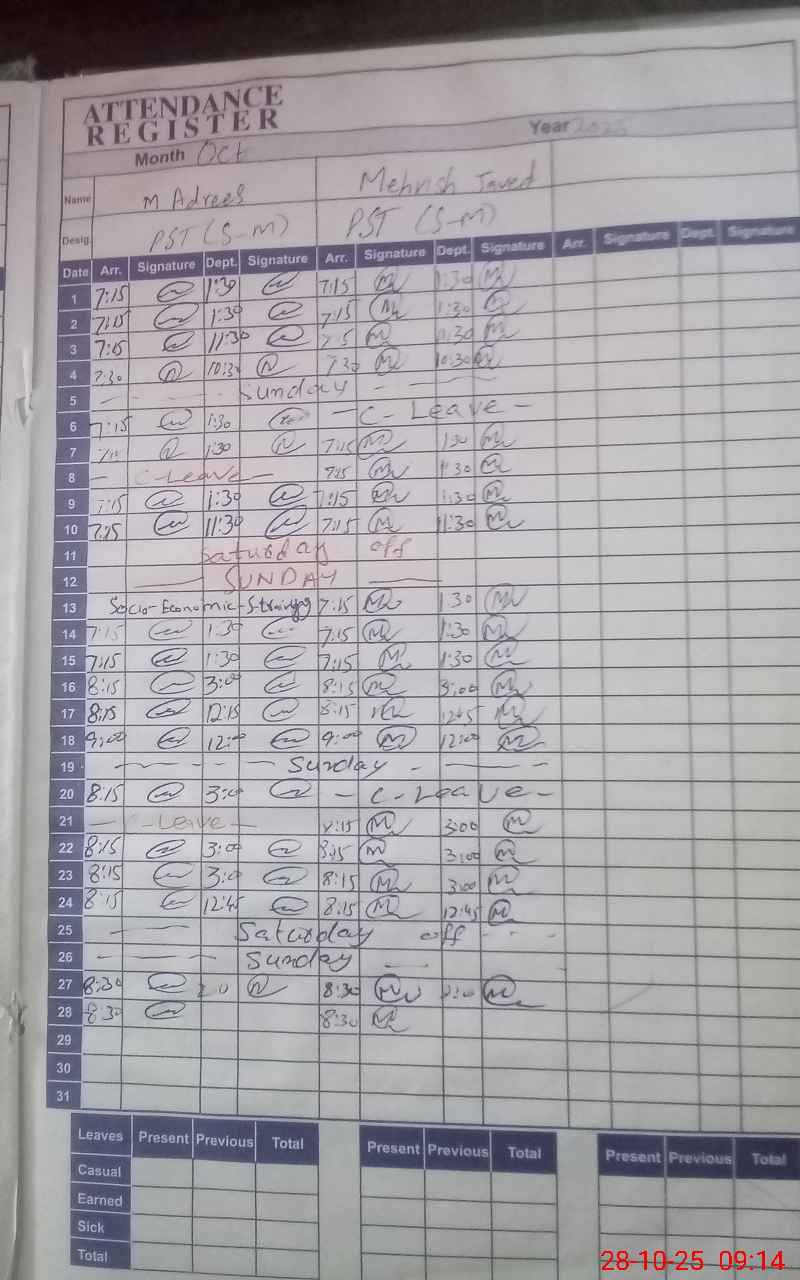 ATTENDANCE
REGISTER
Year 2025
Month Oct
Name M Adrees Mehrish Javed
Desig. PST (S-M) PST (S-M)
Date Arr. Signature Dept. Signature Arr. Signature Dept. Signature Arr. Signature Dept. Signature
1 7:15 1:30 7:15 1:30
2 7:15 1:30 7:15 1:30
3 7:15 11:30 11:30
4 7:30 10:30 7:30 10:30
5 Sunday
6 7:15 1:30 - C-Leave -
7 1:30 7:15 1:30
8 - C-Leave - 7:15 1:30
9 7:15 1:30 7:15 1:30
10 7:15 11:30 7:15 11:30
11 Saturday off
12 SUNDAY
13 Socio-Economic 7:15 1:30
14 7:15 1:30 7:15 1:30
15 7:15 1:30 7:15 1:30
16 8:15 3:00 8:15 3:00
17 8:15 12:15 8:15 12:45
18 9:00 12:00 9:00 12:00
19 Sunday
20 8:15 3:00 - C-Leave -
21 - C-Leave - 8:15 3:00
22 8:15 3:00 8:15 3:00
23 8:15 3:00 8:15 3:00
24 8:15 12:45 8:15 12:45
25 Saturday off
26 Sunday
27 8:30 8:30
28 8:30 8:30
29
30
31
Leaves Present Previous Total Present Previous Total Present Previous Total
Casual
Earned
Sick
Total
28-10-25 09:14